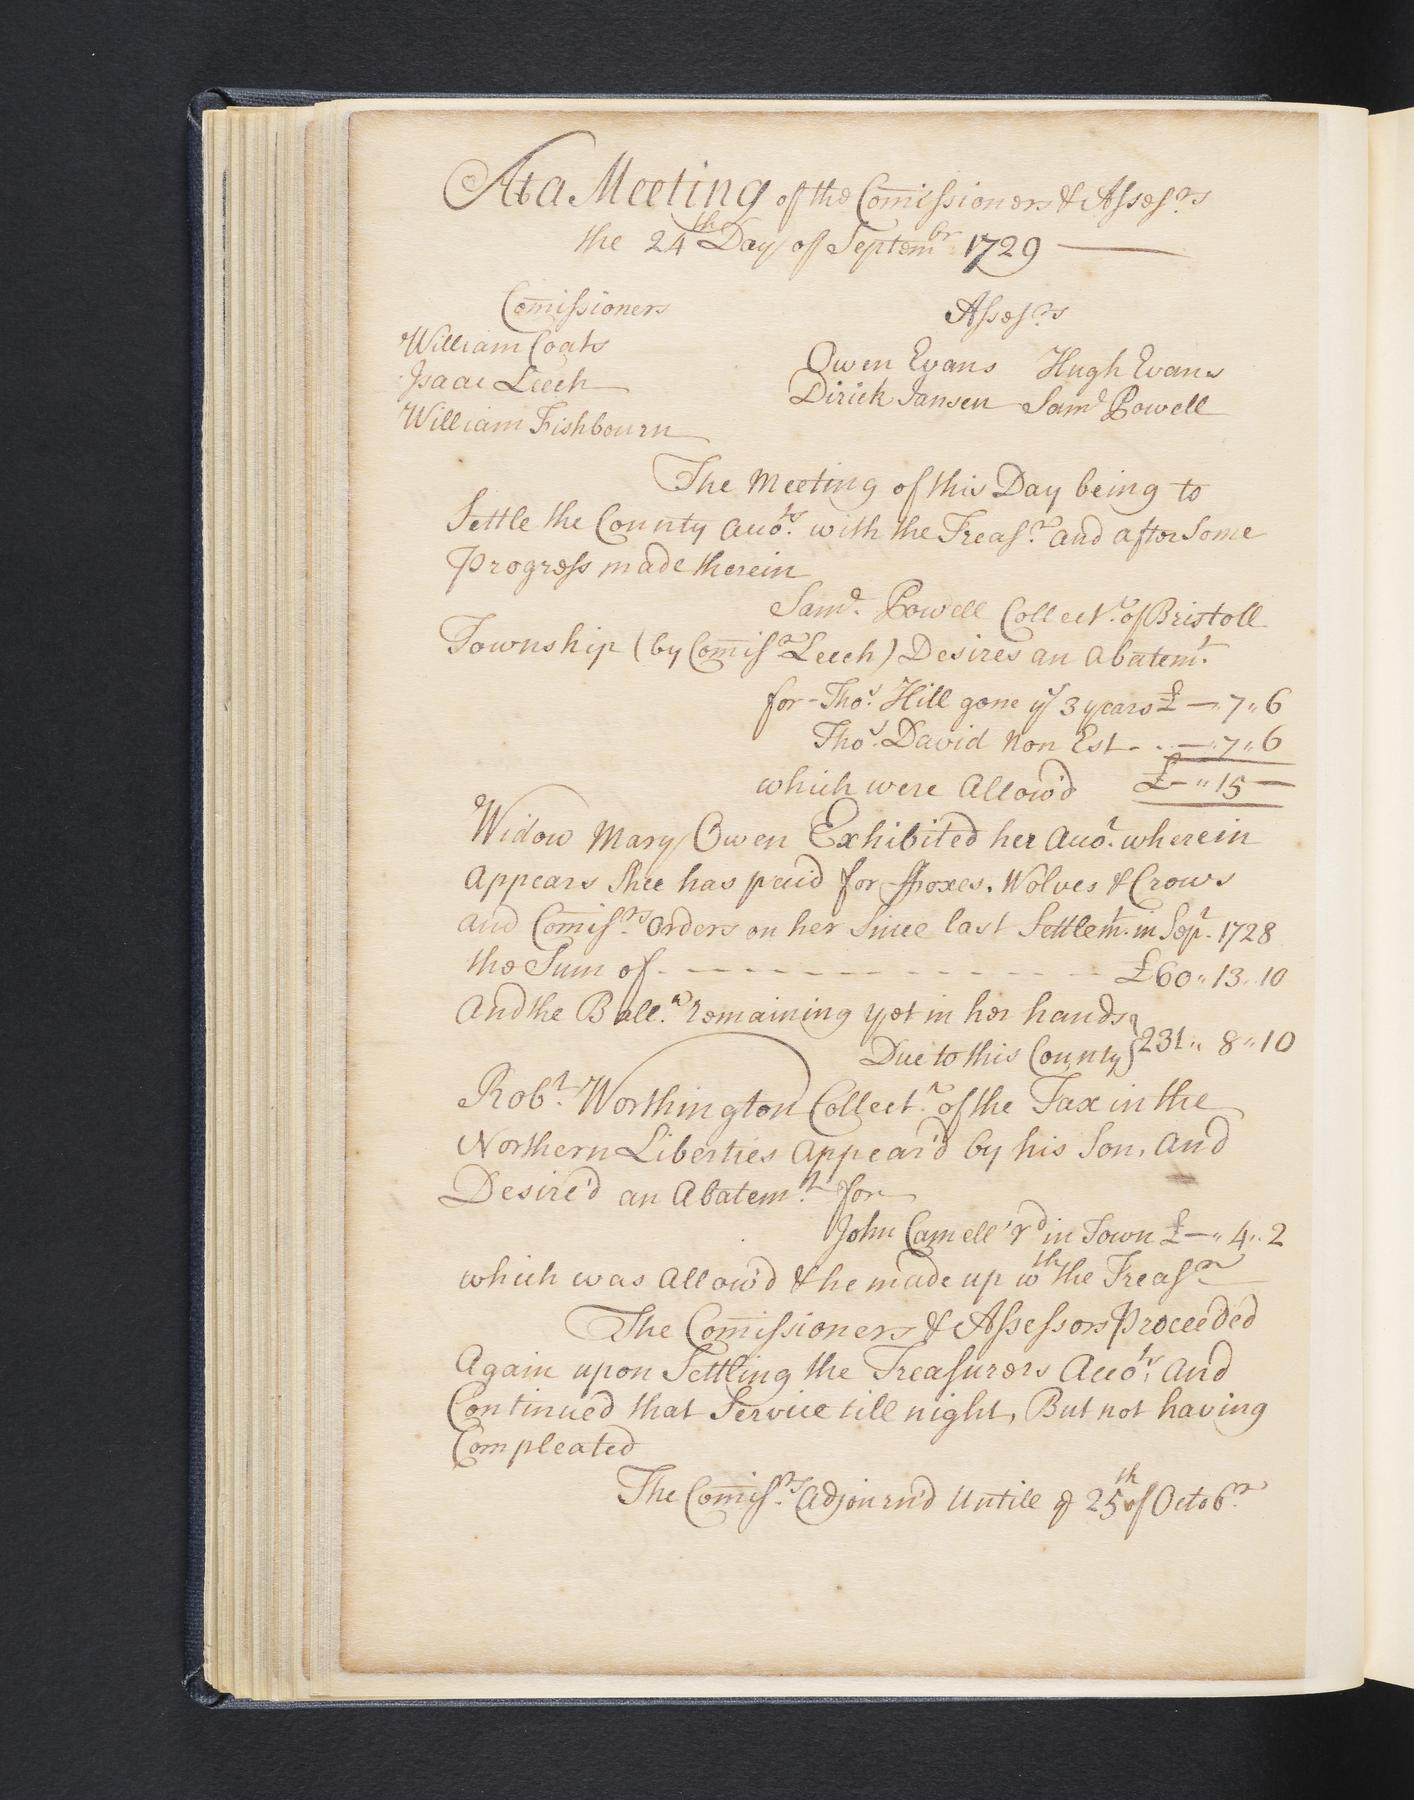 At a Meeting of the Comissioners & Assesrs
the 24th Day of Septembr 1729
Comissioners
Assesrs
William Coats
Isaac Leech
William Fishbourn
Owen Evans Hugh Evans
Dirick Jansen Saml Powell
The Meeting of this Day being to
Settle the County Accots. with the Treasr. and after Some
Progress made therein
Saml. Powell Collectr. of Bristoll
Township (by Comisr Leech) Desires an Abatemt.
for - Thos. Hill gone ys 3 years £ — " 7 " 6
Thos. David Non Est - - — " 7 " 6
which were Allow'd £ - " 15 —
Widow Mary Owen Exhibited her Accot. wherein
Appears Shee has paid for ffoxes, Wolves & Crows
and Comisrs. Orders on her Since last Settlemt. in Sepr. 1728
the Sum of - - - - - - - - - - - - £60 " 13 " 10
And the Ballce. remaining yet in her hands
Due to this County } 231 " 8 " 10
Robt. Worthington Collectr. of the Tax in the
Northern Liberties Appear'd by his Son, And
Desire'd an Abatemt. for
John Camell 'rd in Town £ — " 4 " 2
which was Allow'd & he made up wth the Treasr
The Comissioners & Assessors Proceeded
Again upon Settling the Treasurers Accots. And
Continued that Service till night, But not having
Compleated
The Comisrs. Adjourn'd Untill ye 25th of Octobr.